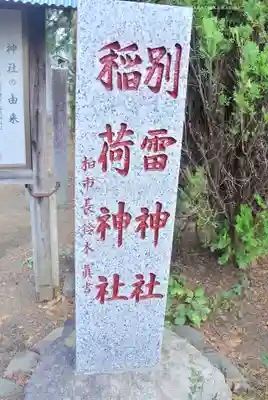 別雷神社
稲荷神社
柏市長鈴木真吉
神社の由来